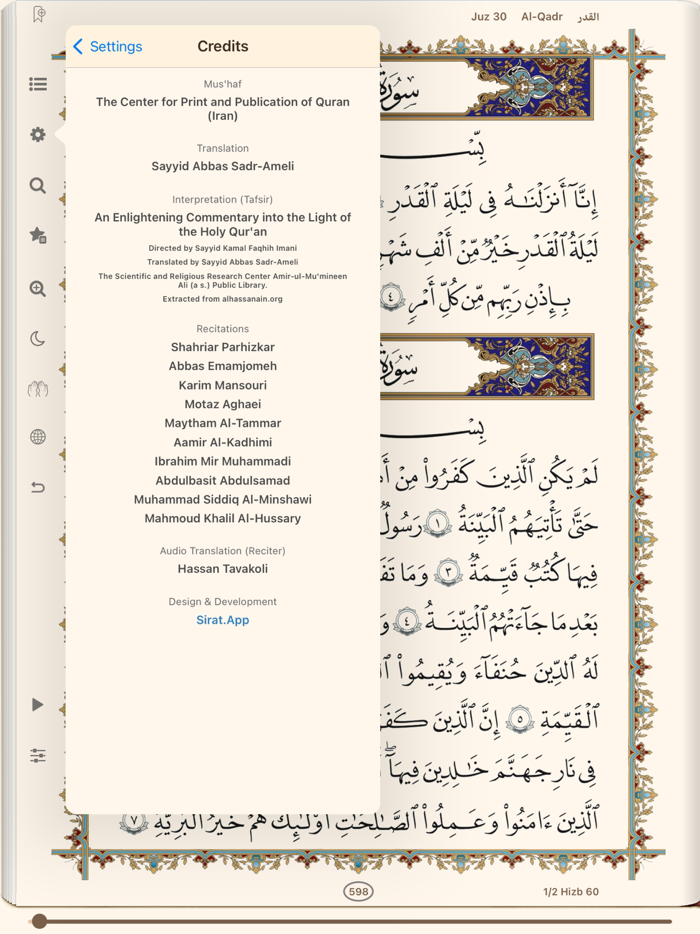 Juz 30 Al-Qadr القدر
Settings
Credits
Mus'haf
The Center for Print and Publication of Quran
(Iran)
Translation
Sayyid Abbas Sadr-Ameli
Interpretation (Tafsir)
An Enlightening Commentary into the Light of
the Holy Qur'an
Directed by Sayyid Kamal Faqhih Imani
Translated by Sayyid Abbas Sadr-Ameli
The Scientific and Religious Research Center Amir-ul-Mu'mineen
Ali (a s.) Public Library.
Extracted from alhassanain.org
Recitations
Shahriar Parhizkar
Abbas Emamjomeh
Karim Mansouri
Motaz Aghaei
Maytham Al-Tammar
Aamir Al-Kadhimi
Ibrahim Mir Muhammadi
Abdulbasit Abdulsamad
Muhammad Siddiq Al-Minshawi
Mahmoud Khalil Al-Hussary
Audio Translation (Reciter)
Hassan Tavakoli
Design & Development
Sirat.App
سورة
بِسْ
إِنَّآ أَنزَلْنَـٰهُ فِى لَيْلَةِ ٱلْقَدْرِ
لَيْلَةُ ٱلْقَدْرِ خَيْرٌ مِّنْ أَلْفِ شَهْرٍ
بِإِذْنِ رَبِّهِم مِّن كُلِّ أَمْرٍ ٤
سورة
بِسْ
لَمْ يَكُنِ ٱلَّذِينَ كَفَرُوا۟ مِنْ أَ
حَتَّىٰ تَأْتِيَهُمُ ٱلْبَيِّنَةُ ١ رَسُولٌ
فِيهَا كُتُبٌ قَيِّمَةٌ ٣ وَمَا تَفَ
بَعْدِ مَا جَآءَتْهُمُ ٱلْبَيِّنَةُ ٤ وَ
لَهُ ٱلدِّينَ حُنَفَآءَ وَيُقِيمُوا۟ ٱل
ٱلْقَيِّمَةِ ٥ إِنَّ ٱلَّذِينَ كَفَر
فِى نَارِ جَهَنَّمَ خَـٰلِدِينَ فِيهَآ
ٱلَّذِينَ ءَامَنُوا۟ وَعَمِلُوا۟ ٱلصَّـٰلِحَـٰتِ أُو۟لَـٰٓئِكَ هُمْ خَيْرُ ٱلْبَرِيَّةِ ٧
598 1/2 Hizb 60